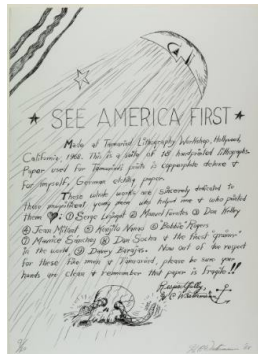 ★ SEE AMERICA FIRST ★
Made at Tamarind Lithography Workshop, Hollywood,
California, 1968. This is a suite of 18 handprinted lithographs.
Paper used for Tamarind's prints is copperplate deluxe &
for myself, German etching paper.
These whole works are sincerely dedicated to
these magnificent young men who helped me & who printed
them ♥: ① Serge Lozingot ② Manuel Fuentes ③ Dan Kelley
④ Jean Milant ⑤ ⑥ Bobbie Rogers
⑦ Maurice Sánchez ⑧ Dan Socha & the finest "grainer"
in the world ⑨ Danny Barajas. Now out of due respect
for these fine men & Tamarind, please be sure your
hands are clean & remember that paper is fragile!!